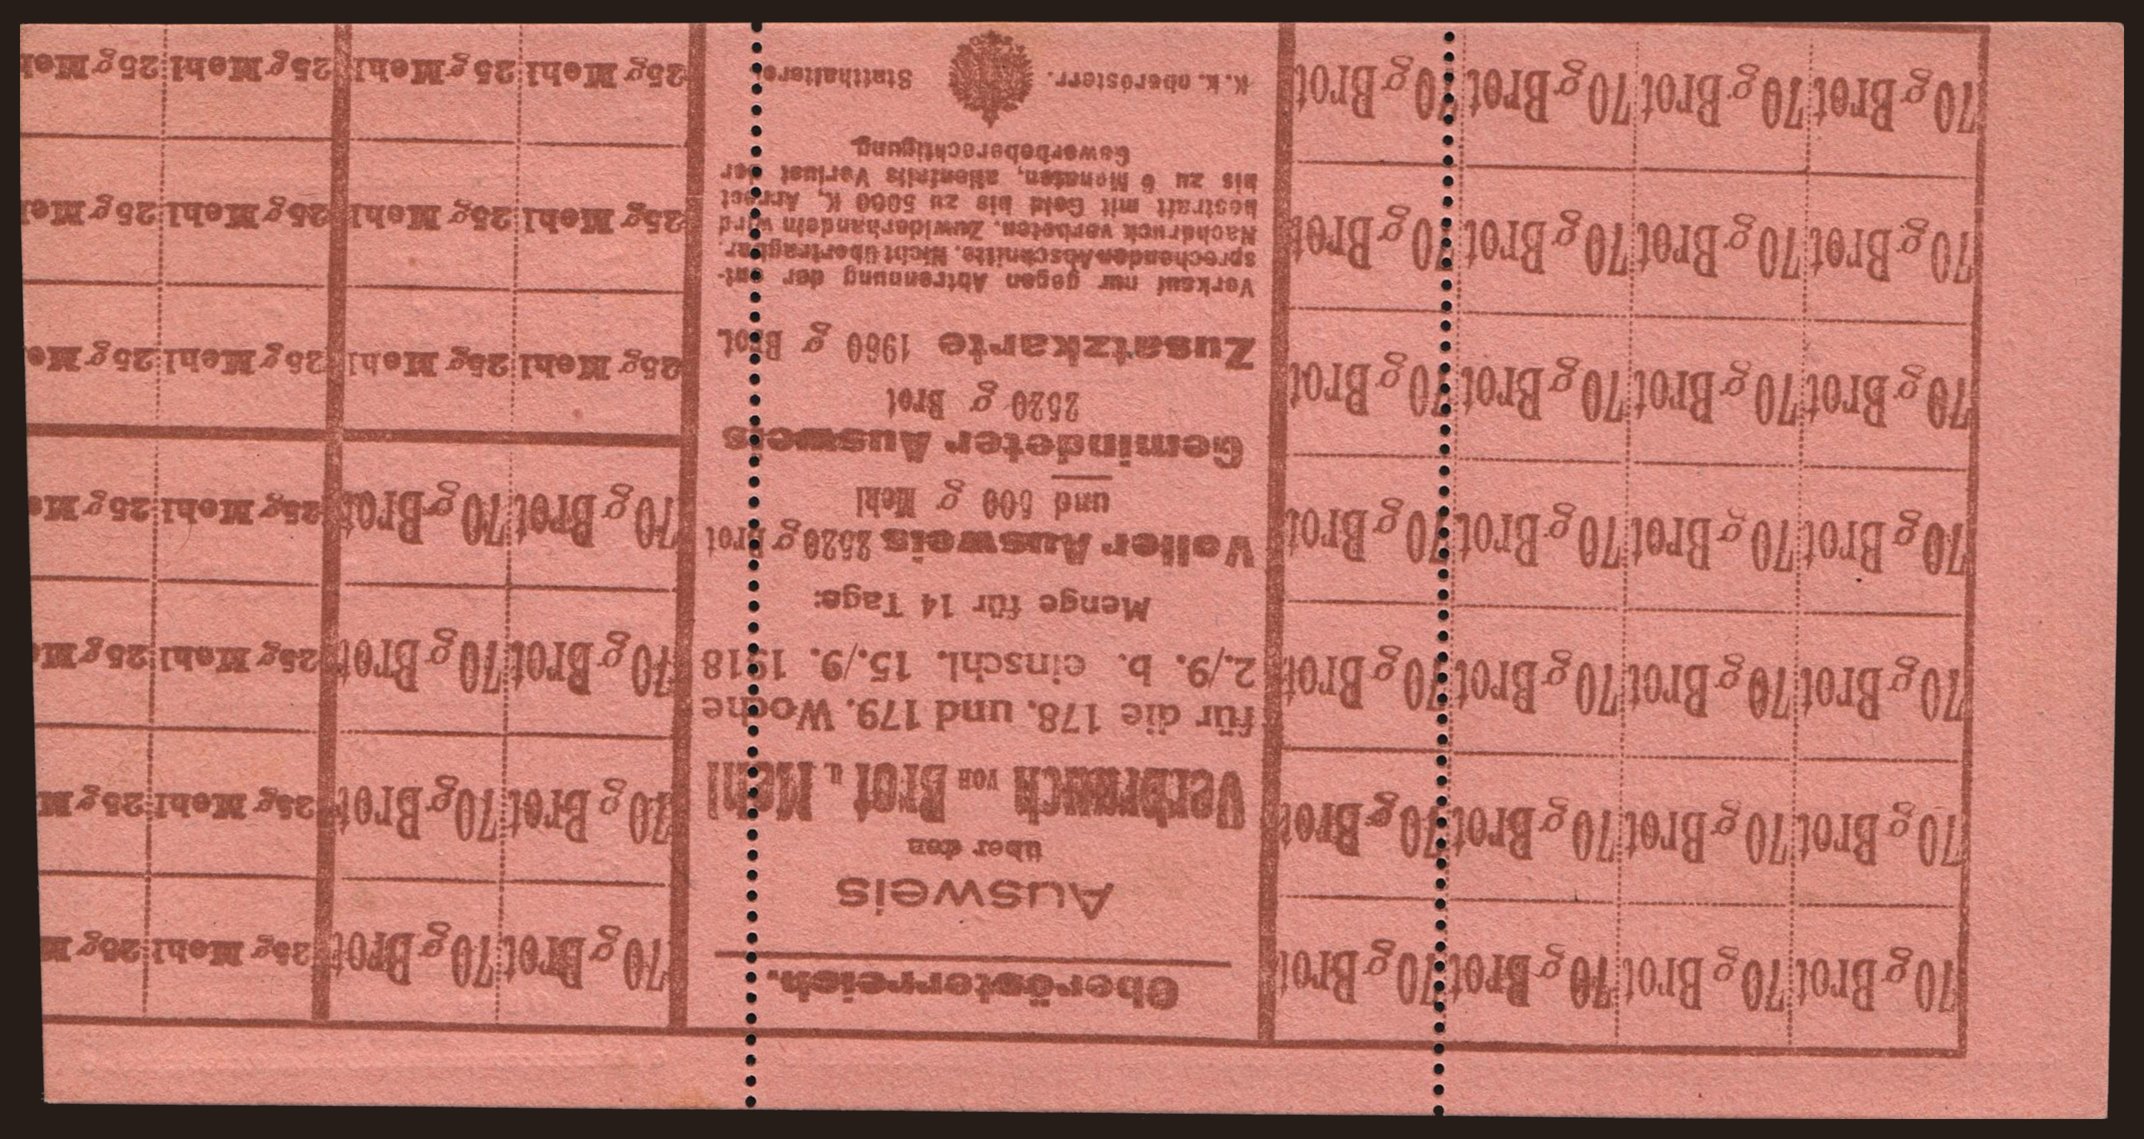 70 g Brot 70 g Brot 70 g Brot 70 g Brot
70 g Brot 70 g Brot 70 g Brot 70 g Brot
70 g Brot 70 g Brot 70 g Brot 70 g Brot
70 g Brot 70 g Brot 70 g Brot 70 g Brot
70 g Brot 70 g Brot 70 g Brot 70 g Brot
70 g Brot 70 g Brot 70 g Brot 70 g Brot
70 g Brot 70 g Brot 70 g Brot 70 g Brot
Oberösterreich.
Ausweis
über den
Verbrauch von Brot u. Mehl
für die 178. und 179. Woche
2./9. b. einschl. 15./9. 1918
Menge für 14 Tage:
Voller Ausweis 2520 g Brot
und 500 g Mehl
Gemindeter Ausweis
2520 g Brot
Zusatzkarte 1960 g Brot.
Verkauf nur gegen Abtrennung der ent-
sprechenden Abschnitte. Nicht übertragbar.
Nachdruck verboten. Zuwiderhandeln wird
bestraft mit Geld bis zu 5000 K, Arrest
bis zu 6 Monaten, allenfalls Verlust der
Gewerbeberechtigung.
K. k. oberösterr. Statthalterei
70 g Brot 70 g Brot 25g Mehl 25g M
70 g Brot 70 g Brot 25g Mehl 25g M
70 g Brot 70 g Brot 25g Mehl 25g M
70 g Brot 70 g Brot 25g Mehl 25g Me
25g Mehl 25g Mehl 25g Mehl 25g Me
25g Mehl 25g Mehl 25g Mehl 25g Me
25g Mehl 25g Mehl 25g Mehl 25g Me